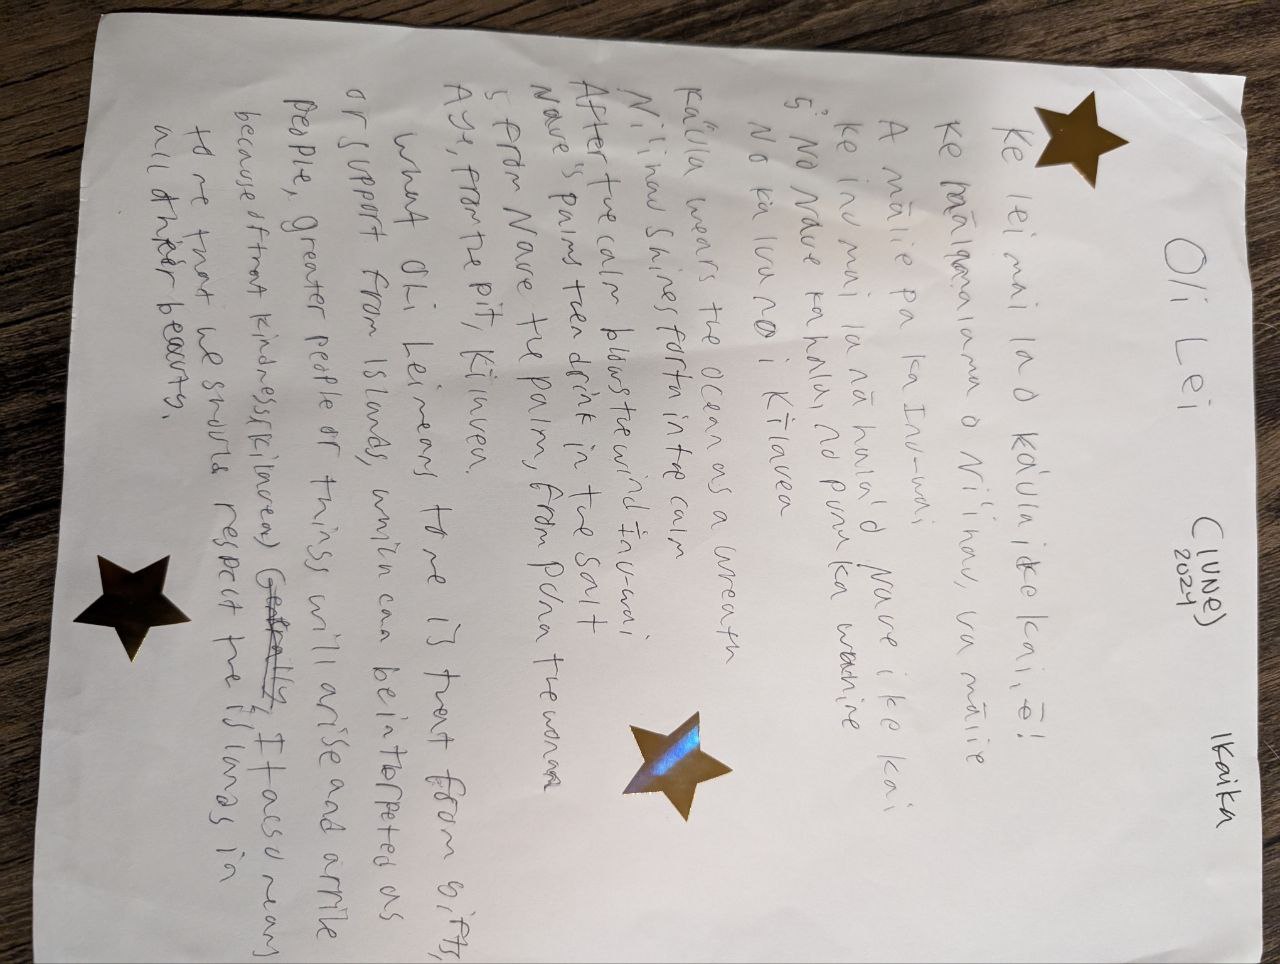 Oli Lei
(IUNE)
2024
Ikaika
Ke lei mai la o Káula i ke kai, ē!
Ke mālamalama o Niʻihau, ua mālie
A mālie pa ka Inu-wai
Ke inu mai la nā hala o Naue i ke kai
5 No Naue ka hala, no puna ka wahine
No ka lua no i Kīlavea
Káula wears the ocean as a wreath
Niʻihau shines forth in the calm
After the calm blows the wind Inu-wai
Naue's palms then drink in the salt
5 From Naue the palm, from Puna the woman
Aye, from the pit, Kilavea.
What Oli Lei means to me is that from gifts,
or support from islands, which can be interpeted as
people, greater people or things will arise and arrile
because of that kindness (kilavea) Generally, It also means
to me that we should respect the islands in
all their beauty.